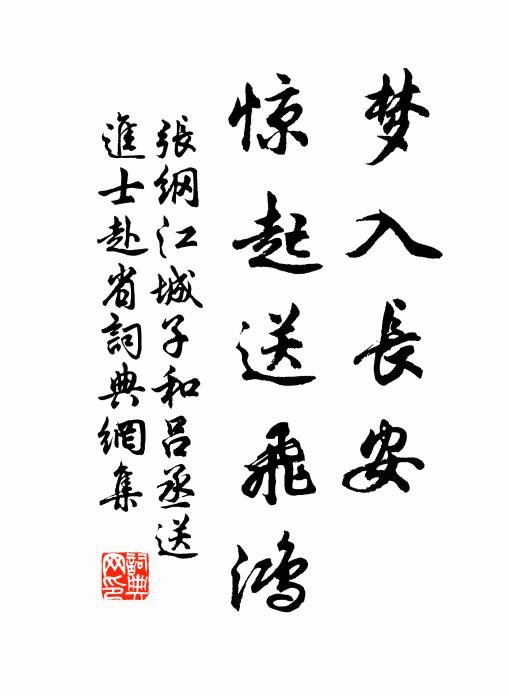 梦入長安
惊起送飛鴻
張綱江城子和吕丞送
進士赴省詞典網集
詞典網印